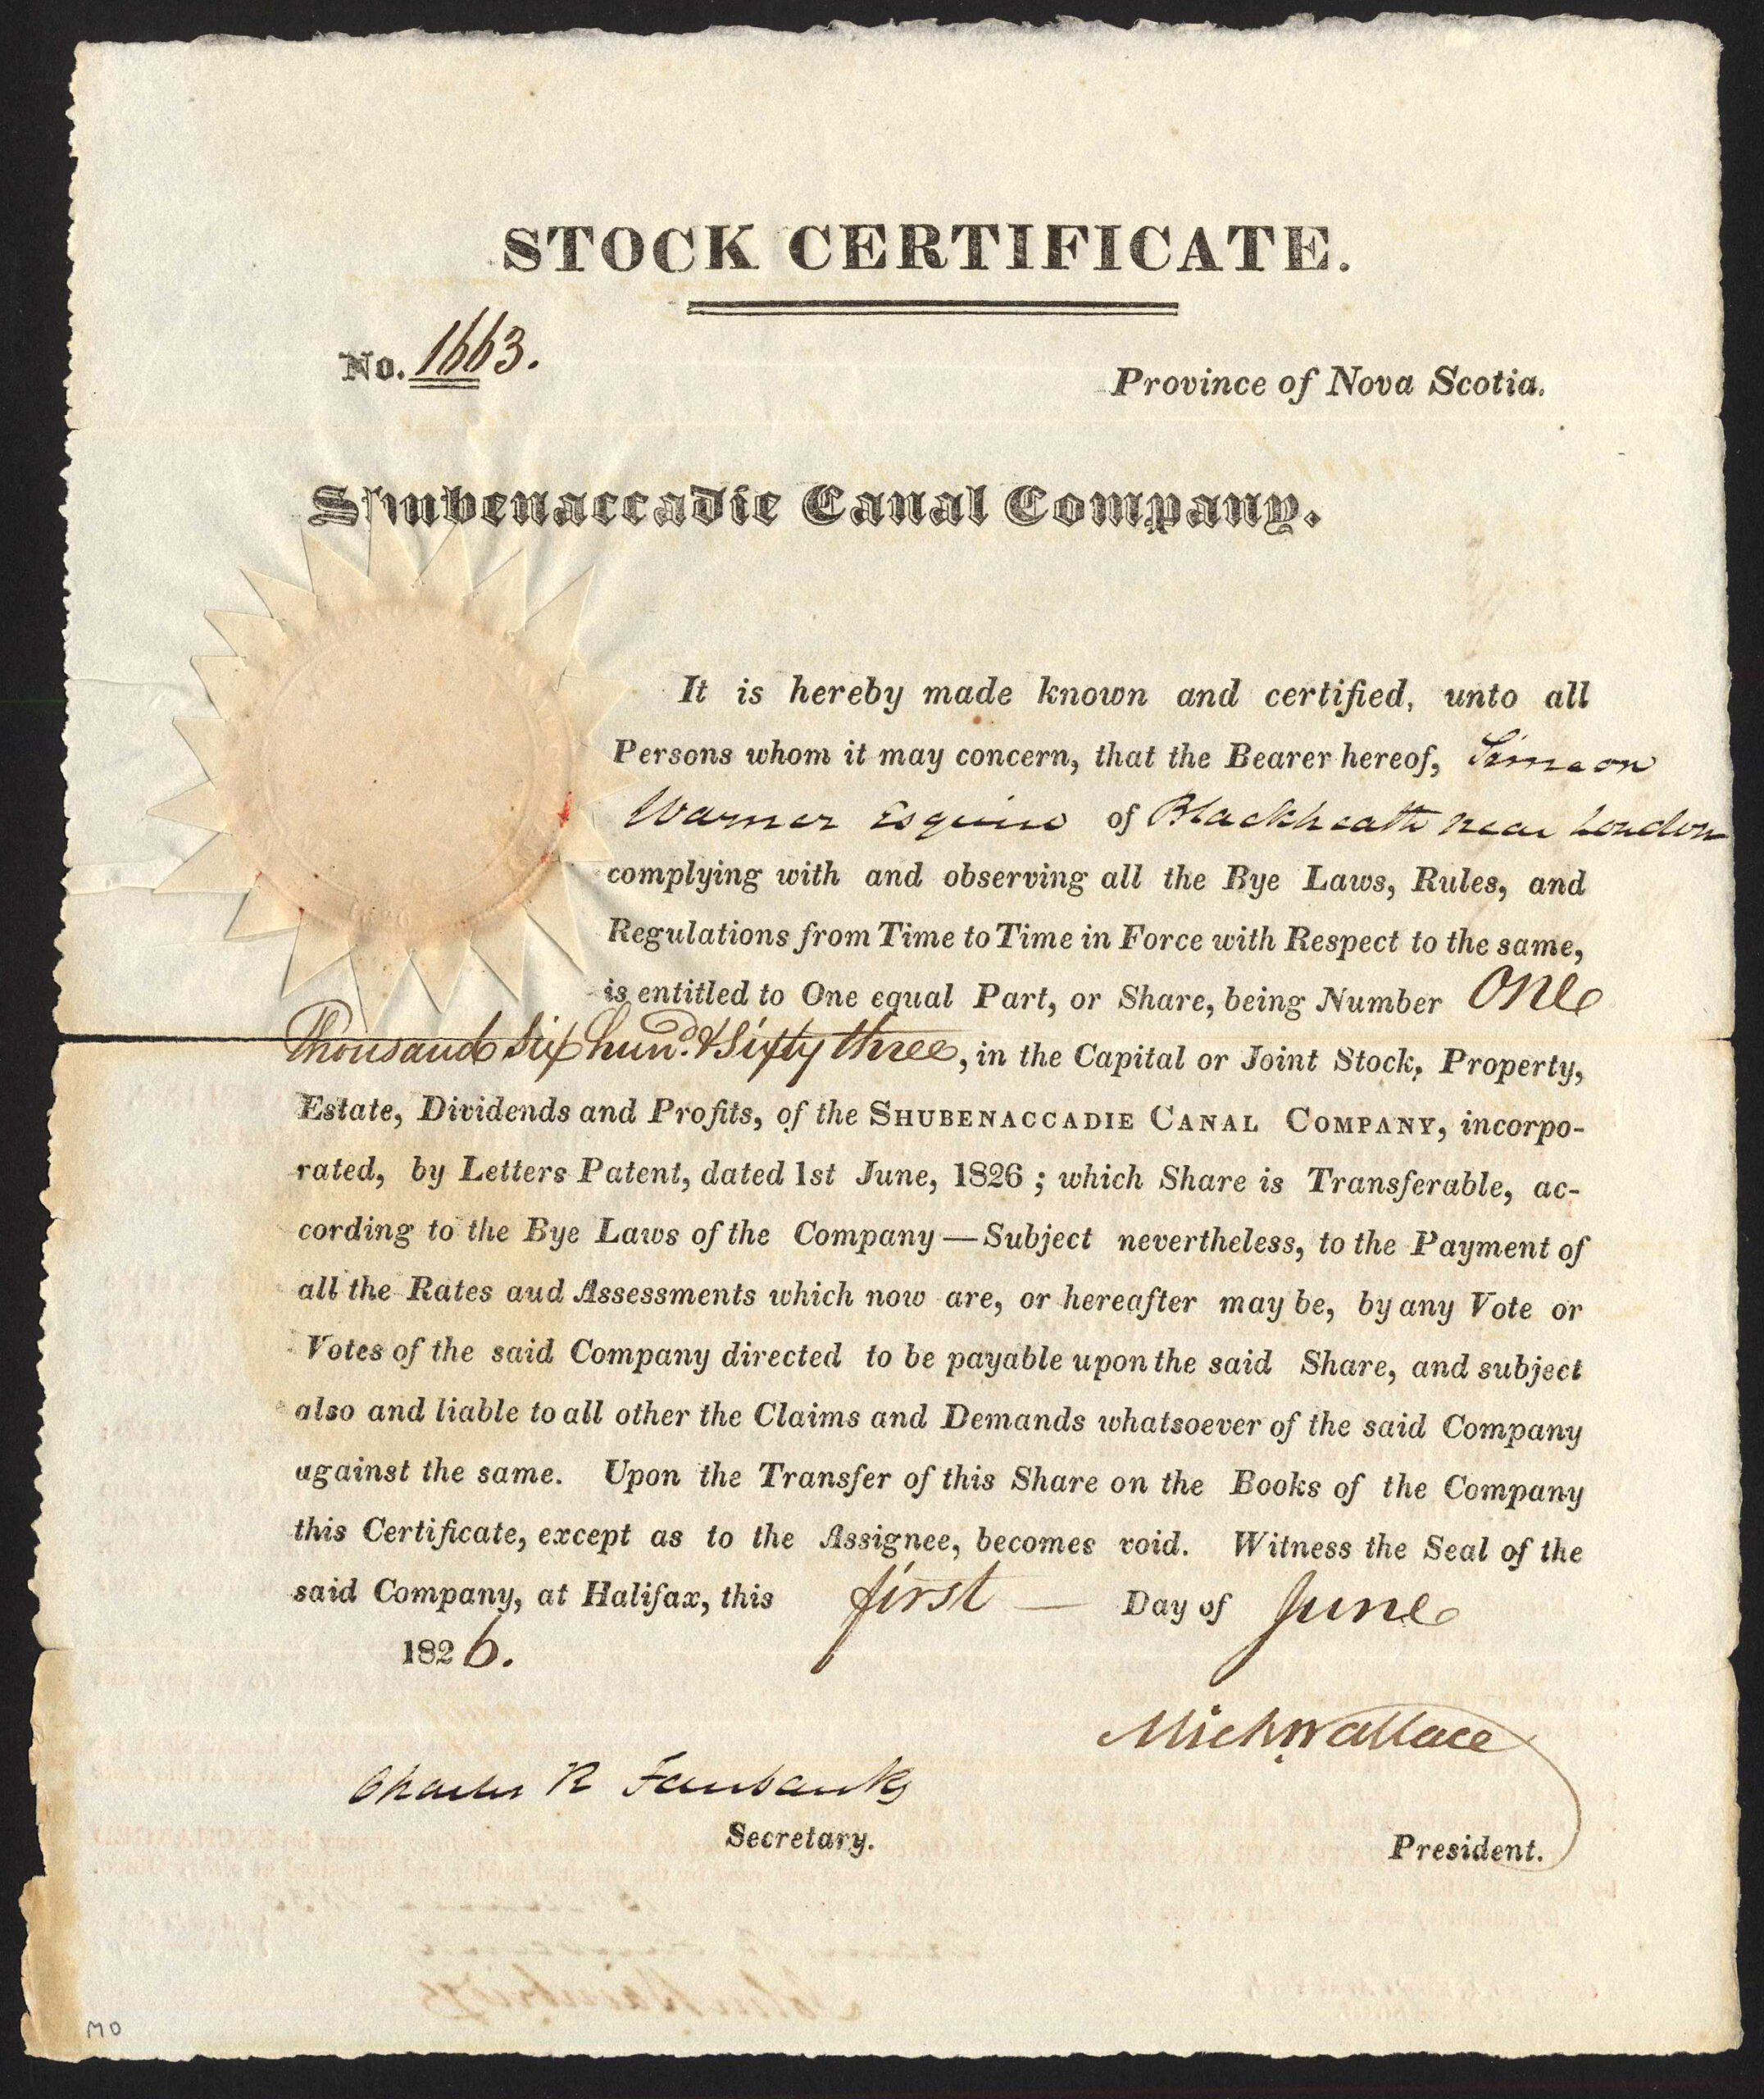 STOCK CERTIFICATE.
No. 1663.
Province of Nova Scotia.
Shubenaccadie Canal Company.
It is hereby made known and certified, unto all
Persons whom it may concern, that the Bearer hereof, Simeon
Warner Esquire of Blackheath near London
complying with and observing all the Bye Laws, Rules, and
Regulations from Time to Time in Force with Respect to the same,
is entitled to One equal Part, or Share, being Number One
Thousand Six hund. & Sixty three, in the Capital or Joint Stock, Property,
Estate, Dividends and Profits, of the SHUBENACCADIE CANAL COMPANY, incorpo-
rated, by Letters Patent, dated 1st June, 1826; which Share is Transferable, ac-
cording to the Bye Laws of the Company—Subject nevertheless, to the Payment of
all the Rates aud Assessments which now are, or hereafter may be, by any Vote or
Votes of the said Company directed to be payable upon the said Share, and subject
also and liable to all other the Claims and Demands whatsoever of the said Company
against the same. Upon the Transfer of this Share on the Books of the Company
this Certificate, except as to the Assignee, becomes void. Witness the Seal of the
said Company, at Halifax, this first — Day of June
1826.
Mich Wallace
Charles R Fairbanks
Secretary.
President.
MD